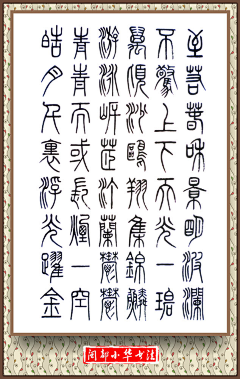 至若春和景明波瀾
不驚上下天光一碧
萬頃沙鷗翔集錦鱗
游泳岸芷汀蘭鬱鬱
青青而或長煙一空
皓月千里浮光躍金
小华书法